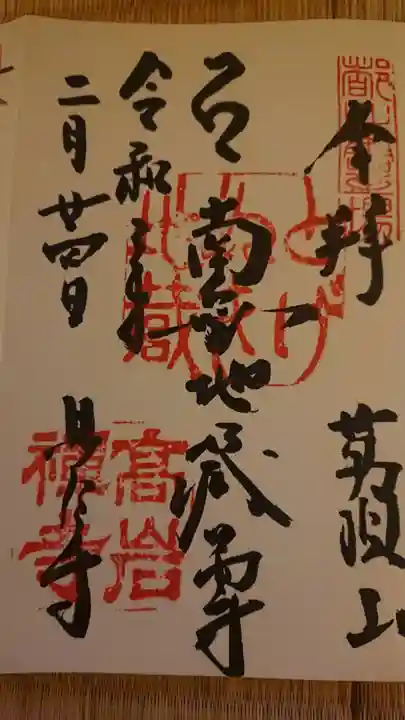 奉拝
萬頂山
南無地蔵尊
とげぬき地蔵
令和三年
二月廿四日
高岩禅寺